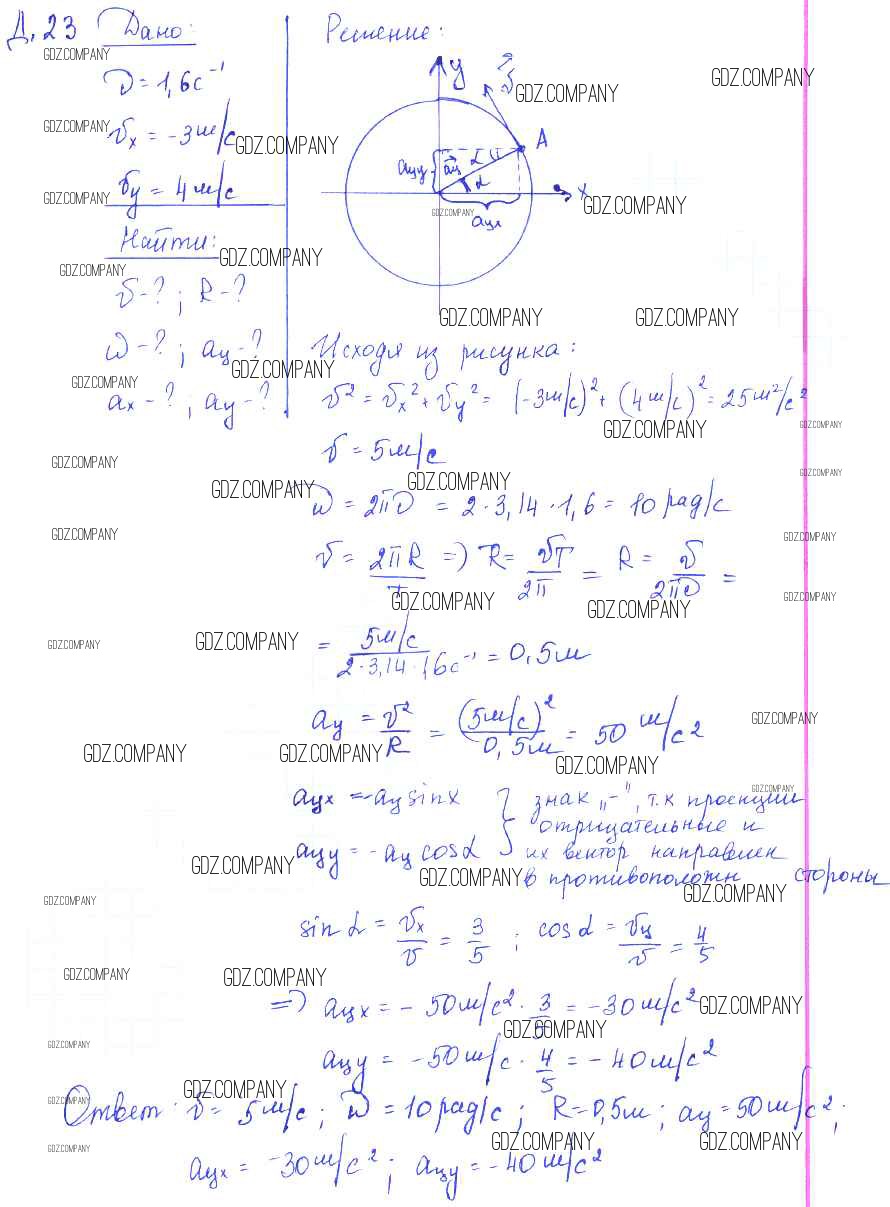 Д. 23 Дано:
ν = 1,6 с⁻¹
υx = -3 м/с
υy = 4 м/с
Найти:
υ - ? ; R - ?
ω - ? ; aц - ?
ax - ? ; ay - ?
Решение:
y
υ⃗
A
aцy
a⃗ц
α
α
x
aцx
Исходя из рисунка:
υ² = υx² + υy² = (-3 м/с)² + (4 м/с)² = 25 м²/с²
υ = 5 м/с
ω = 2πν = 2·3,14·1,6 = 10 рад/с
υ = 2πR/T => R = υT/2π = R = υ/2πν =
= 5 м/с / 2·3,14·1,6 с⁻¹ = 0,5 м
aц = υ²/R = (5 м/с)²/0,5 м = 50 м/с²
aцx = -aц sinα } знак „-", т.к проекции
отрицательные и
aцy = -aц cosα } их вектор направлен
в противоположн стороны
sin α = υx/υ = 3/5 ; cos α = υy/υ = 4/5
=> aцx = - 50 м/с² · 3/5 = -30 м/с²
aцy = -50 м/с · 4/5 = - 40 м/с²
Ответ: υ = 5 м/с ; ω = 10 рад/с ; R = 0,5 м ; aц = 50 м/с² ;
aцx = -30 м/с² ; aцy = -40 м/с²
GDZ.COMPANY